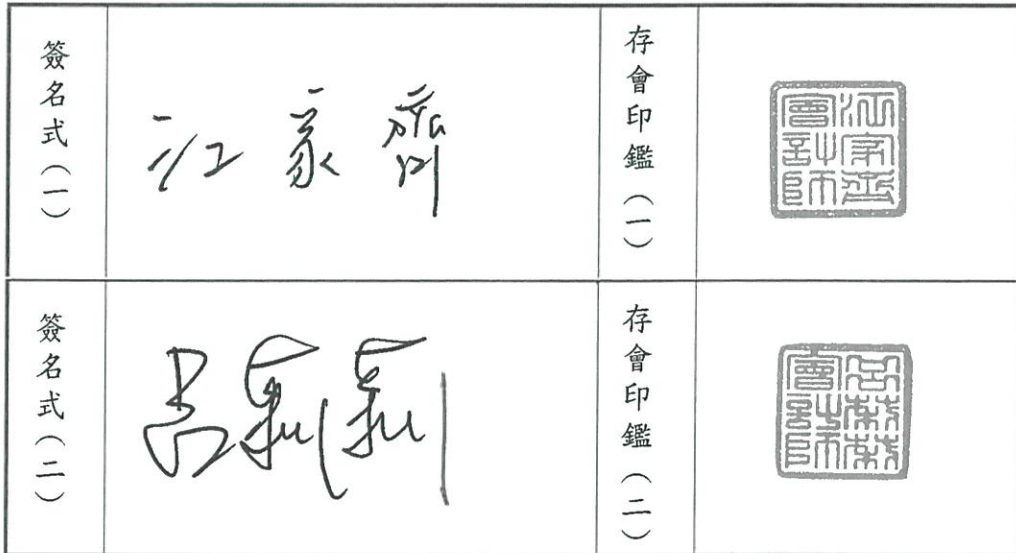 簽名式（一）
江家齊
存會印鑑（一）
江家齊
會計師
簽名式（二）
存會印鑑（二）
會計師